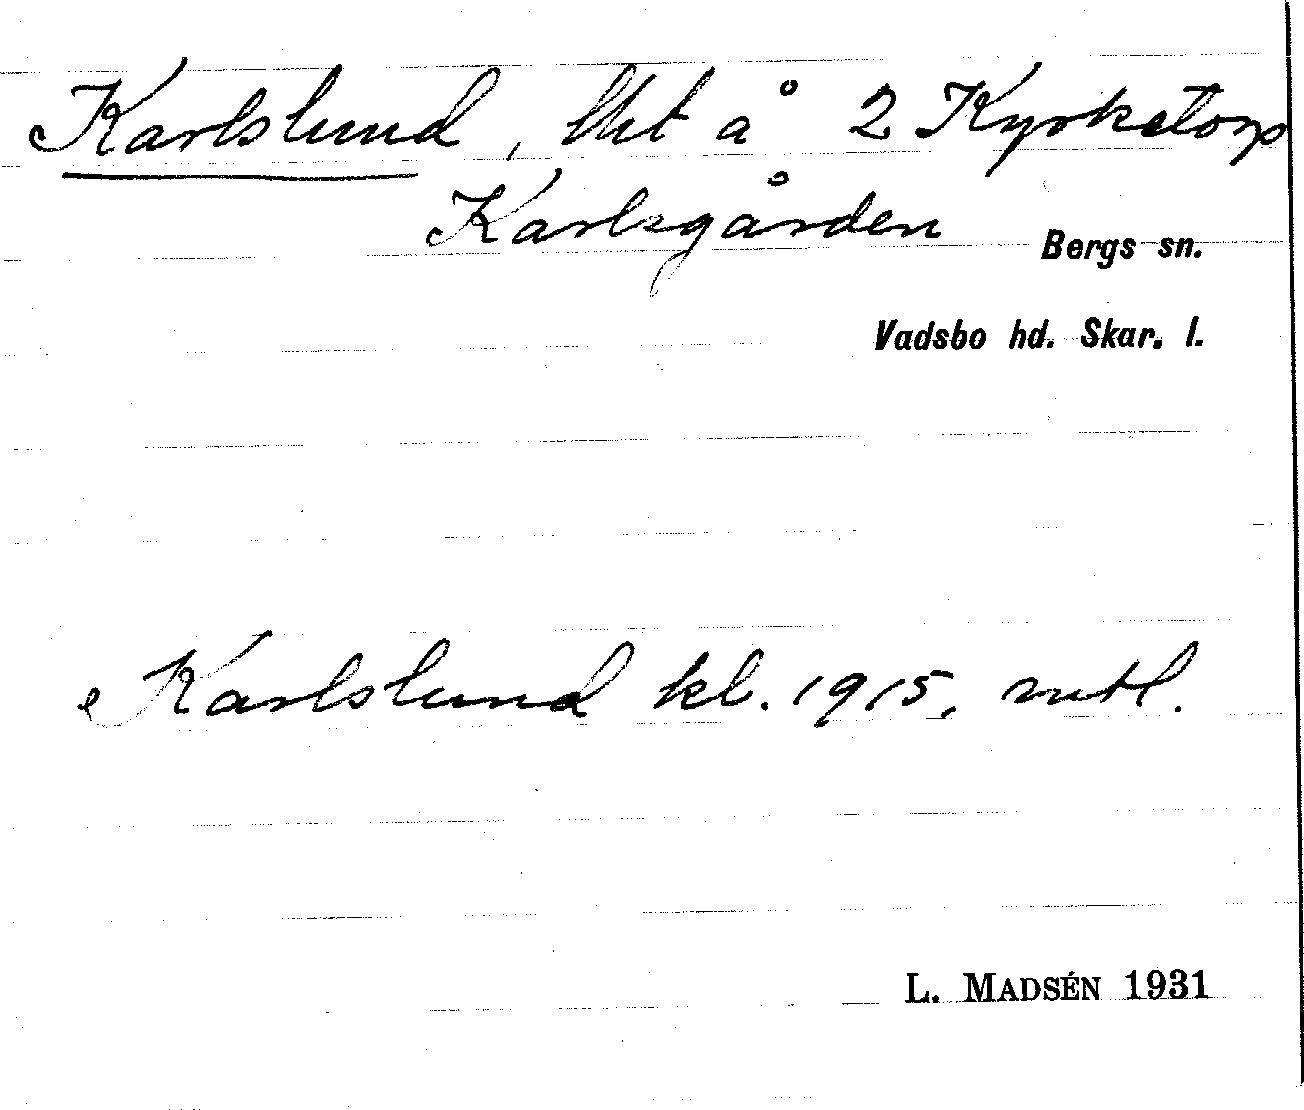 Karlslund, lht å 2 Kyrketorp
Karlsgården
Bergs sn.
Vadsbo hd. Skar. l.
Karlslund kl. 1915, mtl.
L. MADSÉN 1931